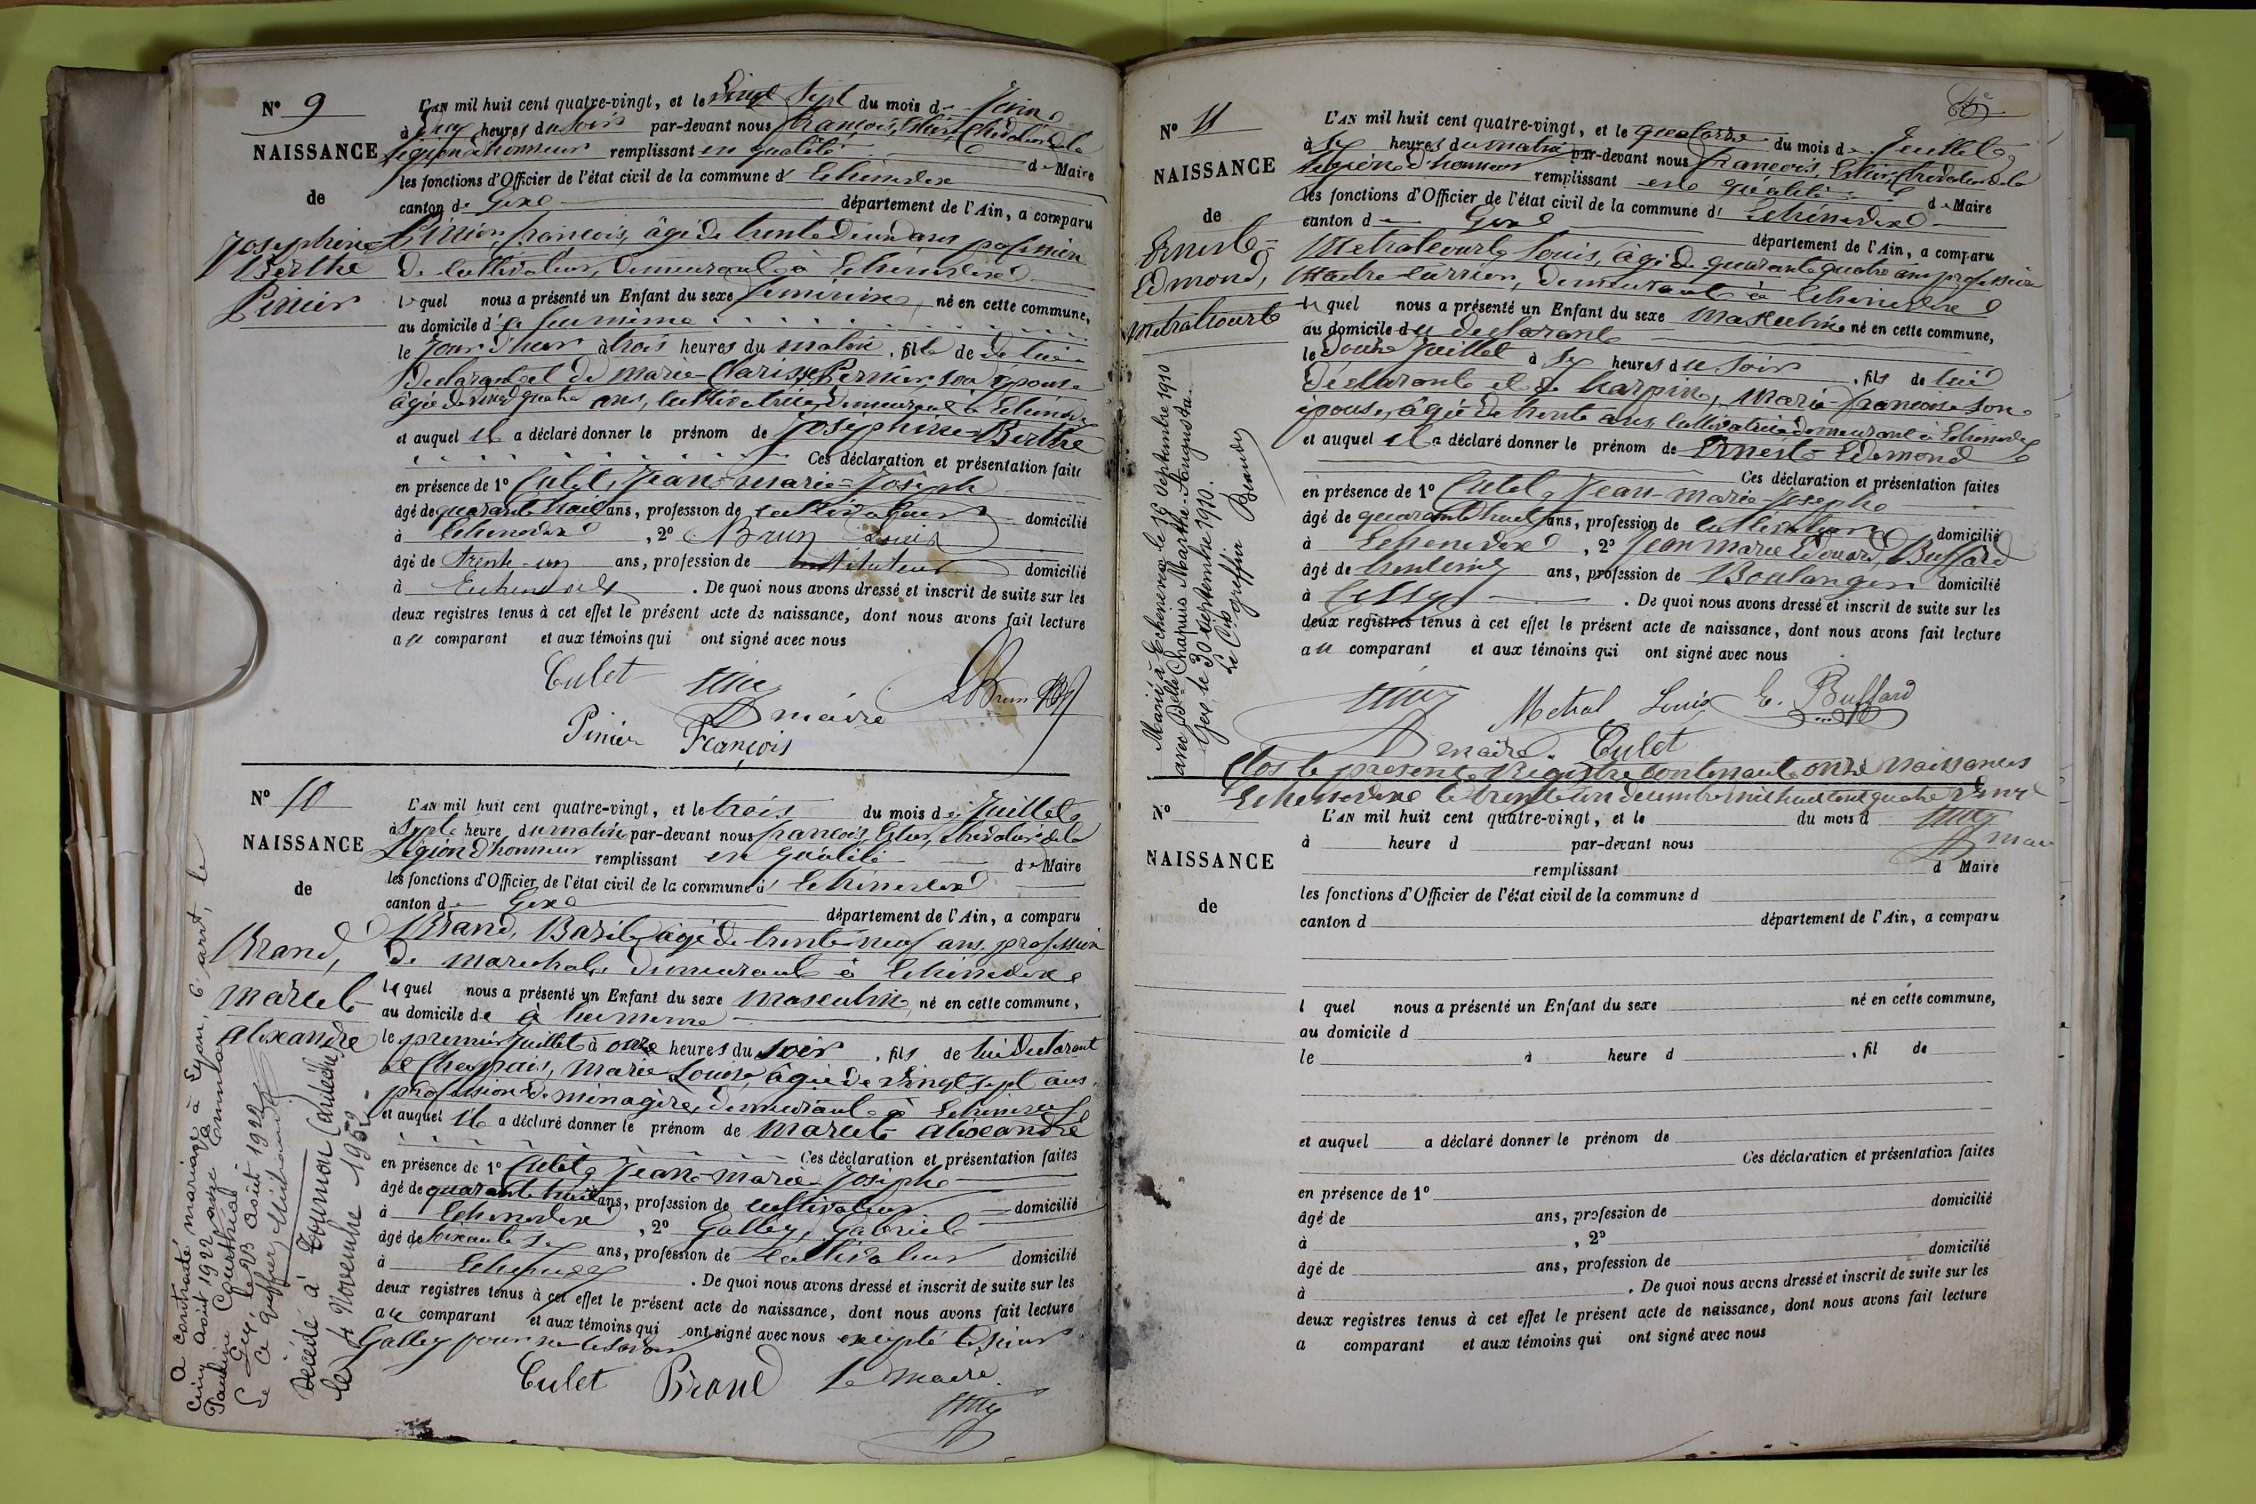 N° 9
NAISSANCE
de
Josephine
Berthe
Pinier
L'AN mil huit cent quatre-vingt, et le Vingt Sept du mois de Juin
à heures du Soir par-devant nous François, Chevalier de la
Légion d'honneur remplissant en qualité de Maire
les fonctions d'Officier de l'état civil de la commune d' Echenevex
canton de Gex département de l'Ain, a comparu
Pinier, françois, âgé de trente deux ans profession
de cultivateur, demeurant à Echenevex
lequel nous a présenté un Enfant du sexe feminin, né en cette commune,
au domicile de lui même
le jour d'hier à trois heures du matin, fille de de lui
déclarant et de Marie Clarisse Pernier, son épouse
âgée de vingt quatre ans, cultivatrice, demeurant à Echenevex
et auquel il a déclaré donner le prénom de Joséphine-Berthe
Ces déclaration et présentation faite
en présence de 1° Culet, Jean-marie-Joseph
âgé de quarante huit ans, profession de cultivateur domicilié
à Echenevex, 2° Brun Louis
âgé de trente-un ans, profession de instituteur domicilié
à Echenevex. De quoi nous avons dressé et inscrit de suite sur les
deux registres tenus à cet effet le présent acte de naissance, dont nous avons fait lecture
au comparant et aux témoins qui ont signé avec nous
Culet
maire
L Brun
Pinier François
N° 10
NAISSANCE
de
Brand,
Marcel
alexandre
L'AN mil huit cent quatre-vingt, et le trois du mois de Juillet
à Sept heure du matin par-devant nous françois, Chevalier de la
Légion d'honneur remplissant en qualité de Maire
les fonctions d'Officier de l'état civil de la commune d' Echenevex
canton de Gex département de l'Ain, a comparu
Brand, Basile, âgé de trente-neuf ans, profession
de marechal, demeurant à Echenevex
lequel nous a présenté un Enfant du sexe masculin, né en cette commune,
au domicile de lui même
le premier juillet à onze heures du soir, fils de lui déclarant
et Chappais, Marie Louise, âgée de vingt sept ans,
profession de ménagère, demeurant à Echenevex
et auquel il a déclaré donner le prénom de Marcel alexandre
Ces déclaration et présentation faites
en présence de 1° Culet, Jean-marie Josephe
âgé de quarante huit ans, profession de cultivateur domicilié
à Echenevex, 2° Galley, Gabriel
âgé de soixante ans, profession de cultivateur domicilié
à Echenevex. De quoi nous avons dressé et inscrit de suite sur les
deux registres tenus à cet effet le présent acte de naissance, dont nous avons fait lecture
au comparant et aux témoins qui ont signé avec nous excepté le sieur
Galley pour ne le savoir
Culet Brand le Maire
A contracté mariage à Lyon, 6e arrt, le
cinq août 1922 avec
Pauline
Gex, le 23 août 1922
Le greffier
Décédé à Tournon (Ardèche)
le 4 Novembre 1952
N° 11
NAISSANCE
de
Erneste
Edmond,
Metralcourt
L'AN mil huit cent quatre-vingt, et le quatorze du mois de Juillet
à six heures du matin par-devant nous françois, Chevalier de la
Légion d'honneur remplissant en qualité de Maire
les fonctions d'Officier de l'état civil de la commune d' Echenevex
canton de Gex département de l'Ain, a comparu
Metralcourt, Louis, âgé de quarante quatre ans profession
Maitre carrier, demeurant à Echenevex
lequel nous a présenté un Enfant du sexe Masculin né en cette commune,
au domicile du déclarant
le douze Juillet à six heures du soir, fils de lui
déclarant et de harpin, Marie-françoise son
épouse, âgée de trente ans, cultivatrice demeurant à Echenevex
et auquel il a déclaré donner le prénom de Ernest-Edmond
Ces déclaration et présentation faites
en présence de 1° Culet, Jean-marie-Josephe
âgé de quarante huit ans, profession de cultivateur domicilié
à Echenevex, 2° Jean Marie Edouard, Buffard
âgé de trente ans, profession de Boulanger domicilié
à Cessy. De quoi nous avons dressé et inscrit de suite sur les
deux registres tenus à cet effet le présent acte de naissance, dont nous avons fait lecture
au comparant et aux témoins qui ont signé avec nous
Metral Louis E. Buffard
maire Culet
Marié à Echenevex le 16 Septembre 1910
avec Delle Chapuis Marthe-Augusta
Gex, le 30 septembre 1910.
Le Cis greffier
Clos le present Registre contenant onze naissances
Echenevex le trente un décembre mil huit cent quatre vingt
N°
NAISSANCE
de
L'AN mil huit cent quatre-vingt, et le du mois d
à heure d par-devant nous
remplissant d Maire
les fonctions d'Officier de l'état civil de la commune d
canton d département de l'Ain, a comparu
l quel nous a présenté un Enfant du sexe né en cette commune,
au domicile d
le à heure d , fil de
et auquel a déclaré donner le prénom de
Ces déclaration et présentation faites
en présence de 1° domicilié
âgé de ans, profession de
à , 2° domicilié
âgé de ans, profession de
à . De quoi nous avons dressé et inscrit de suite sur les
deux registres tenus à cet effet le présent acte de naissance, dont nous avons fait lecture
a comparant et aux témoins qui ont signé avec nous